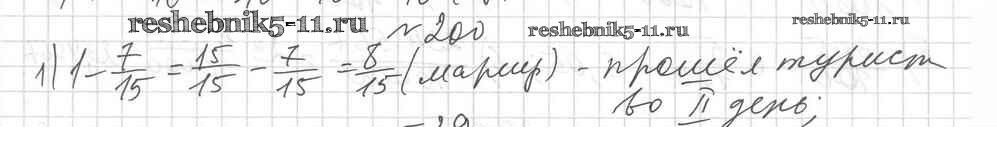 reshebnik5-11.ru
№ 200
reshebnik5-11.ru
reshebnik5-11.ru
1) 1 - 7/15 = 15/15 - 7/15 = 8/15 (маршр) - прошёл турист
во II день;